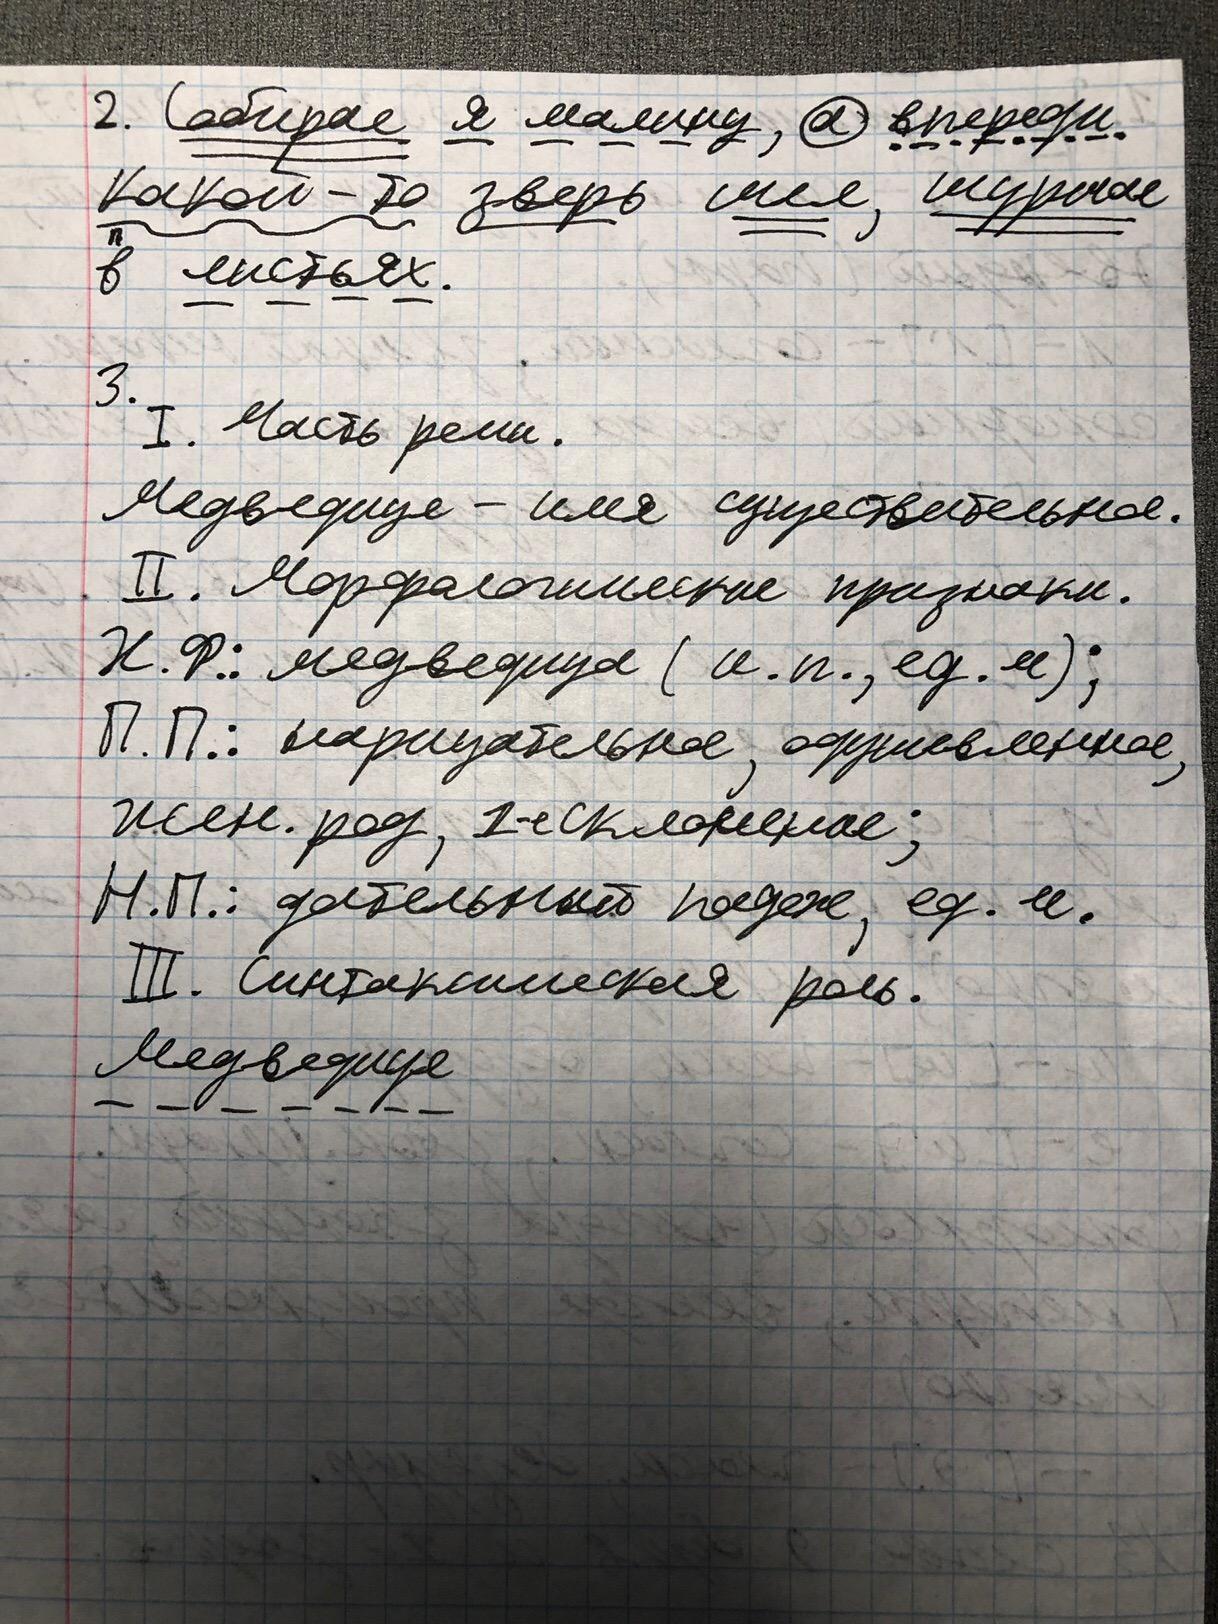 2. Собирал я малину, а впереди
какой-то зверь шел, шуршал
в листьях.
3.
I. Часть речи.
Медведице – имя существительное.
II. Морфологические признаки.
Н.Ф.: медведица (и.п., ед.ч);
П.П.: нарицательное, одушевленное,
жен. род, 1-е склонение;
Н.П.: дательный падеж, ед.ч.
III. Синтаксическая роль.
Медведице